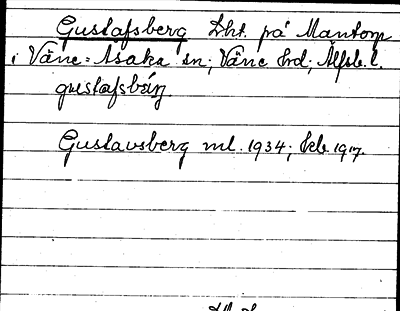 Gustafsberg Lht. på Mantorp
i Väne-Åsaka sn; Väne hd; Älfsb. l.
gustafsbärj.
Gustavsberg ml. 1934; Ekb. 1917.